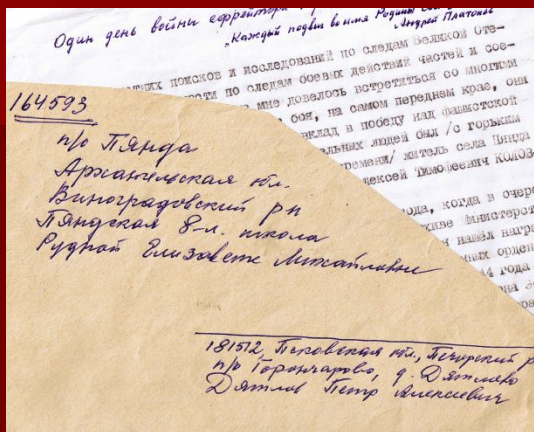 Один день войны ефрейтора
„Каждый подвиг во имя Родины
Андрей Платонов
поисков и исследований по следам Великой Оте-
по следам боевых действий частей и сое-
мне довелось встретиться со многими
боя, на самом переднем крае, они
вклад в победу над фашистской
людей был /с горьким
времени/ житель села Пянда
Алексей Тимофеевич КОЛОЗ-
года, когда в очере
Министерст
нашел нагр
орден
44 года
на
164593
п/о Пянда
Архангельская обл.
Виноградовский рн
Пяндская 8-л. школа
Рудной Елизавете Михайловне
181512, Псковская обл., Печорский р
п/о Горончарово, д. Дятлово
Дятлов Петр Алексеевич